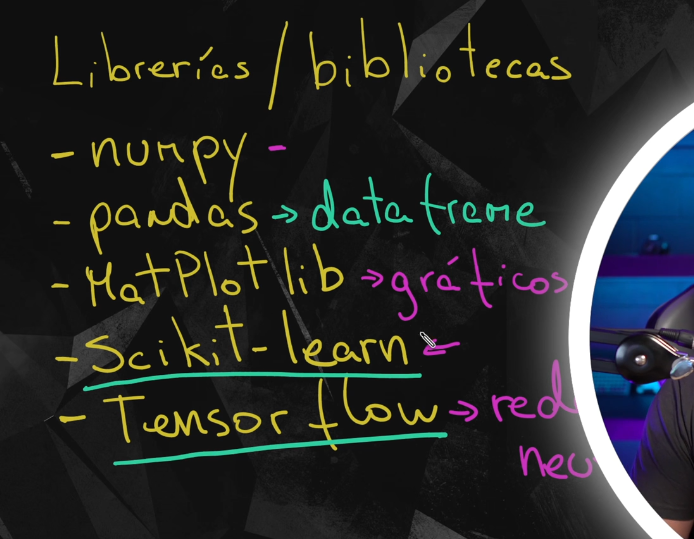 Librerías / bibliotecas
- numpy -
- pandas → dataframe
- MatPlotlib → gráficos
- Scikit-learn ←
- Tensor flow → red
neu